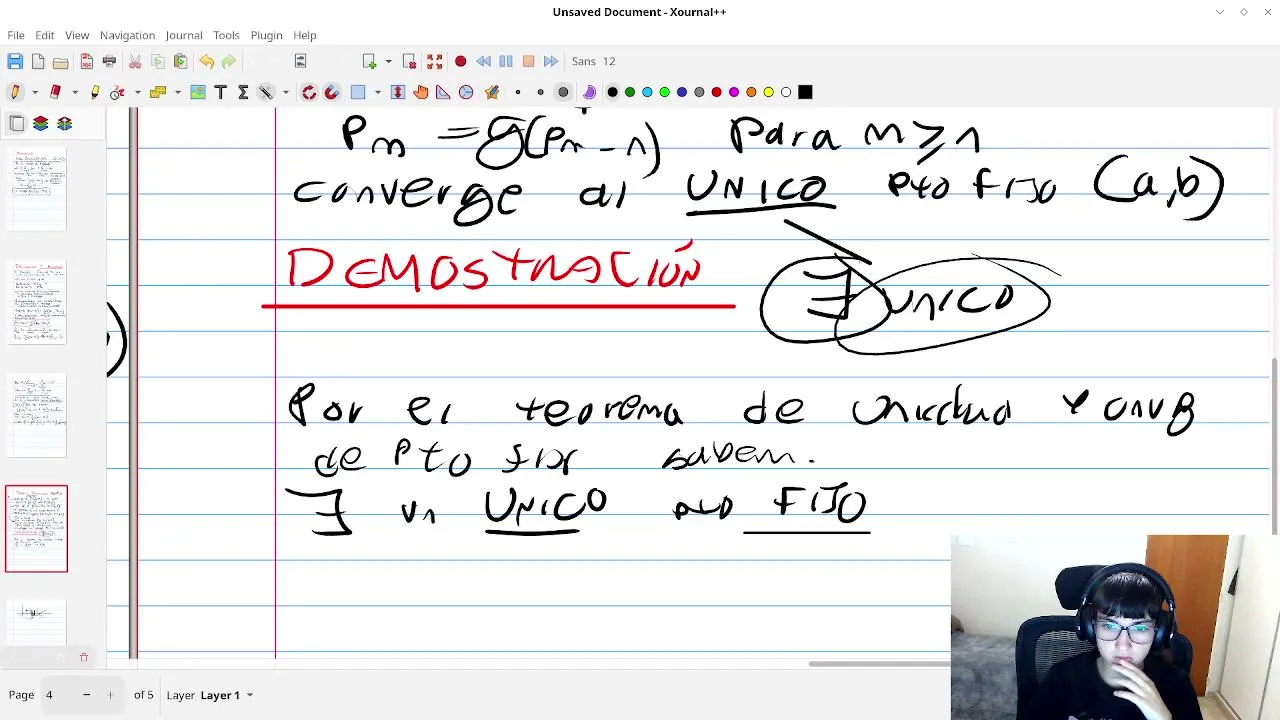 Unsaved Document - Xournal++
File Edit View Navigation Journal Tools Plugin Help
Sans 12
Pn = g(Pn-1) Para n ≥ 1
converge al UNICO Pto FIJO (a,b)
DEMOSTRACIÓN
∃ UNICO
Por el teorema de y
de Pto sabem.
∃ un UNICO FIJO
Page 4 − + of 5 Layer Layer 1